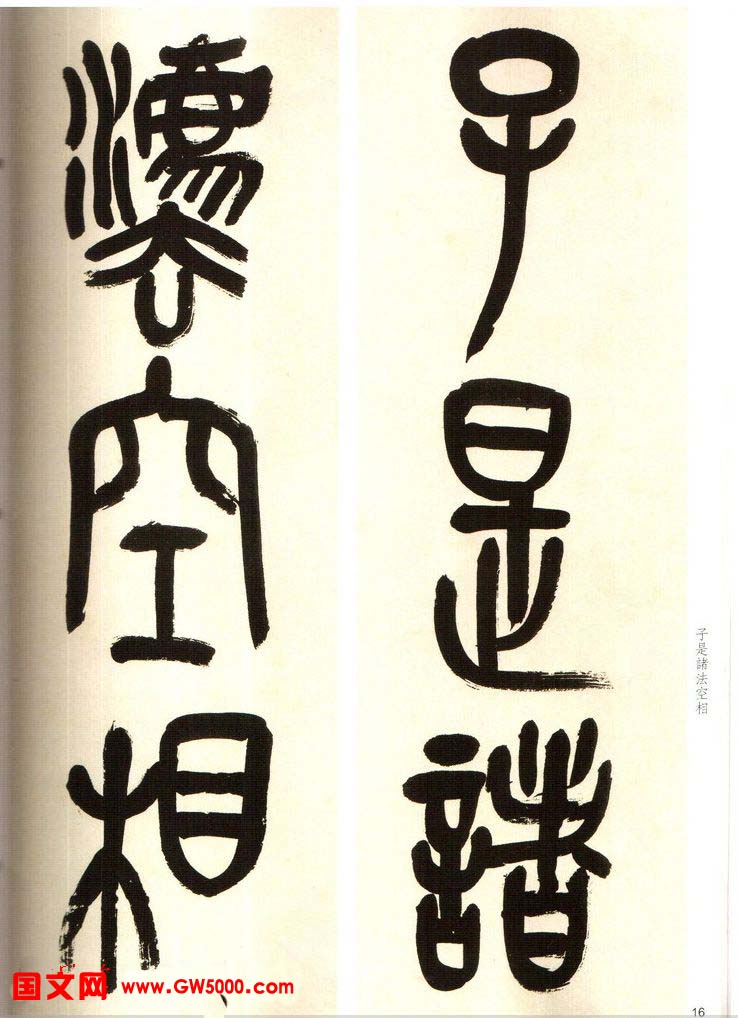 子是諸
灋空相
子是諸法空相
16
国文网 www.GW5000.com